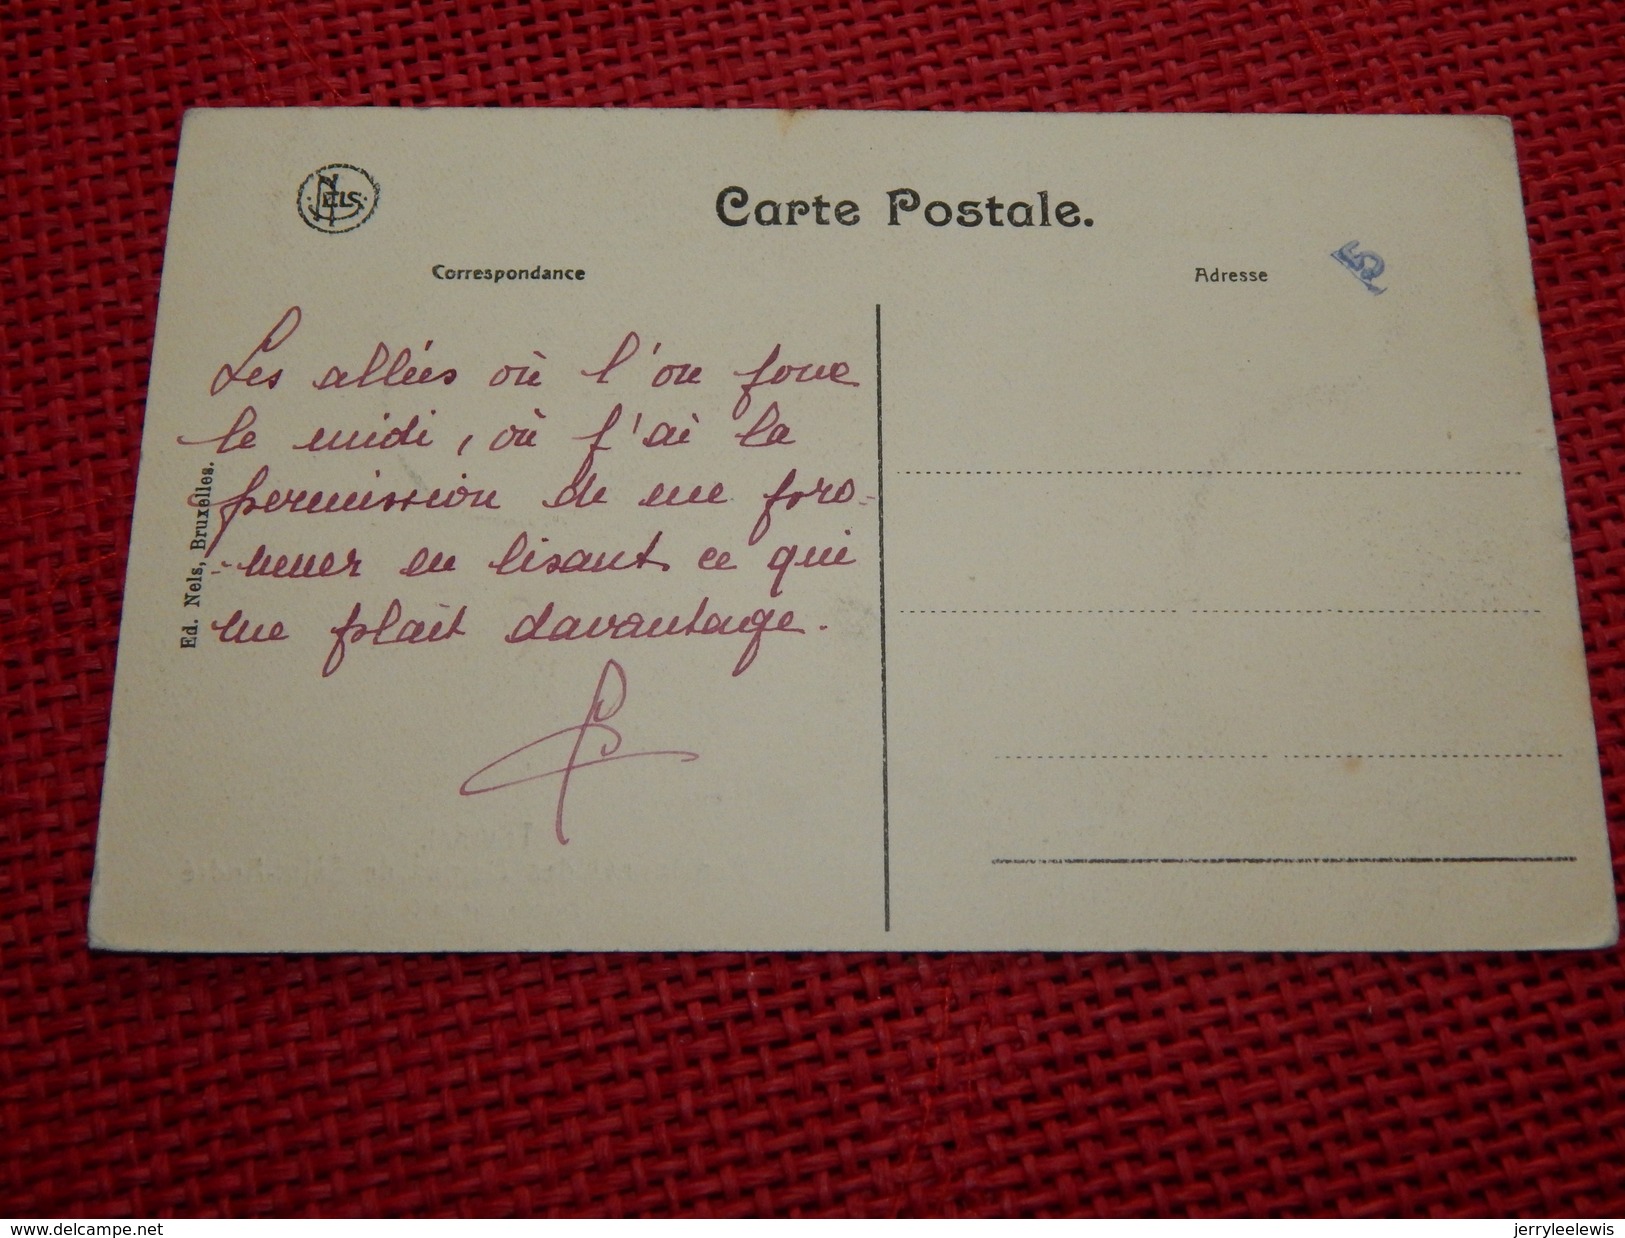 NELS
Carte Postale.
Correspondance
Adresse
Les allées où l'on joue
le midi, où j'ai la
permission de me pro-
-mener en lisant ce qui
me plait davantage.
Ed. Nels, Bruxelles.
www.delcampe.net
jerryleelewis